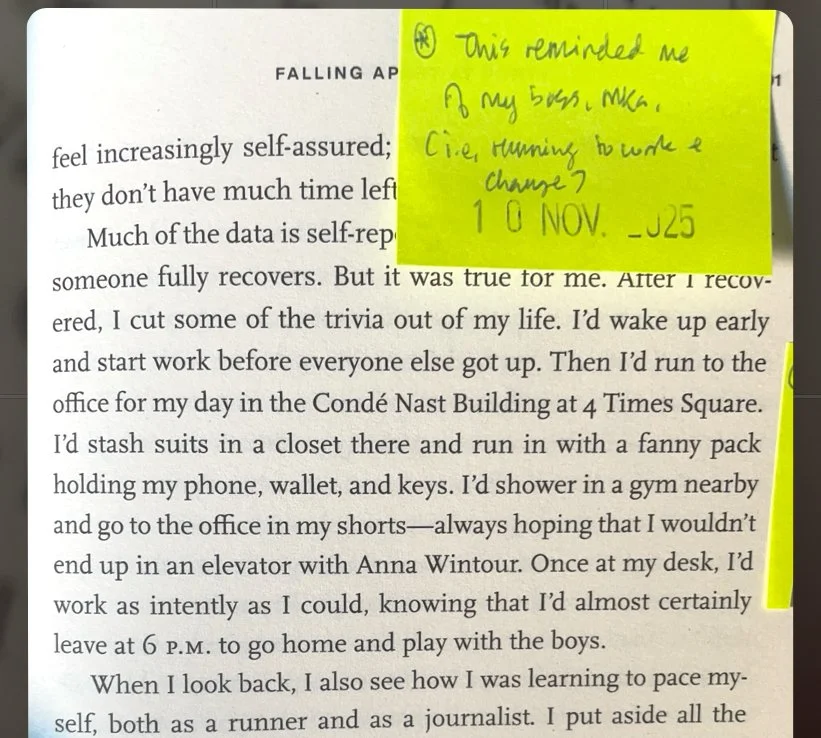 FALLING AP
1
This reminded me
of my boss, MKa,
(i.e, running to work &
change)
10 NOV. 025
feel increasingly self-assured;
they don't have much time left
Much of the data is self-rep
someone fully recovers. But it was true for me. After I recov-
ered, I cut some of the trivia out of my life. I'd wake up early
and start work before everyone else got up. Then I'd run to the
office for my day in the Condé Nast Building at 4 Times Square.
I'd stash suits in a closet there and run in with a fanny pack
holding my phone, wallet, and keys. I'd shower in a gym nearby
and go to the office in my shorts—always hoping that I wouldn't
end up in an elevator with Anna Wintour. Once at my desk, I'd
work as intently as I could, knowing that I'd almost certainly
leave at 6 P.M. to go home and play with the boys.
When I look back, I also see how I was learning to pace my-
self, both as a runner and as a journalist. I put aside all the